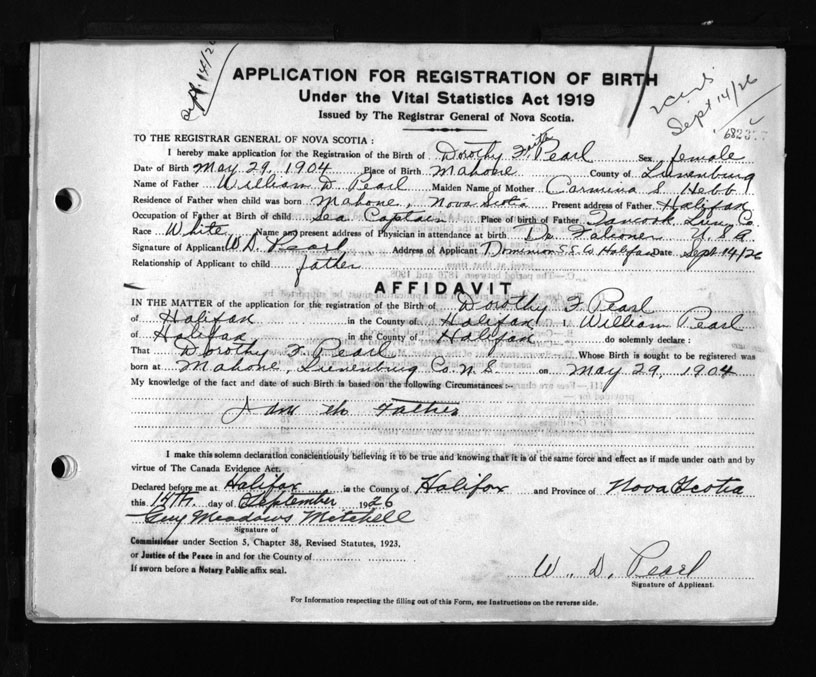 Sept. 14/26
Sept 14/26
APPLICATION FOR REGISTRATION OF BIRTH
Under the Vital Statistics Act 1919
Issued by The Registrar General of Nova Scotia.
TO THE REGISTRAR GENERAL OF NOVA SCOTIA :
I hereby make application for the Registration of the Birth of Dorothy F. Pearl Sex female
Date of Birth May 29, 1904 Place of Birth Mahone County of Lunenburg
Name of Father William D Pearl Maiden Name of Mother Carmina S. Hebb
Residence of Father when child was born Mahone, Nova Scotia Present address of Father Halifax
Occupation of Father at Birth of child Sea Captain Place of birth of Father Tancook Lun. Co.
Race White Name and present address of Physician in attendance at birth Dr. U S A
Signature of Applicant W D. Pearl Address of Applicant Dominion S.S. Co Halifax Date Sept 14/26
Relationship of Applicant to child father
AFFIDAVIT
IN THE MATTER of the application for the registration of the Birth of Dorothy F Pearl
of Halifax in the County of Halifax I, William Pearl
of Halifax in the County of Halifax do solemnly declare :
That Dorothy F. Pearl Whose Birth is sought to be registered was
born at Mahone, Lunenburg Co. N.S. on May 29, 1904
My knowledge of the fact and date of such Birth is based on the following Circumstances :-
I am the Father
I make this solemn declaration conscientiously believing it to be true and knowing that it is of the same force and effect as if made under oath and by
virtue of The Canada Evidence Act.
Declared before me at Halifax in the County of Halifax and Province of Nova Scotia
this 14th. day of September 1926
Guy Meadows Mitchell
Signature of
Commissioner under Section 5, Chapter 38, Revised Statutes, 1923,
or Justice of the Peace in and for the County of
If sworn before a Notary Public affix seal.
W. D. Pearl
Signature of Applicant.
For Information respecting the filling out of this Form, see Instructions on the reverse side.